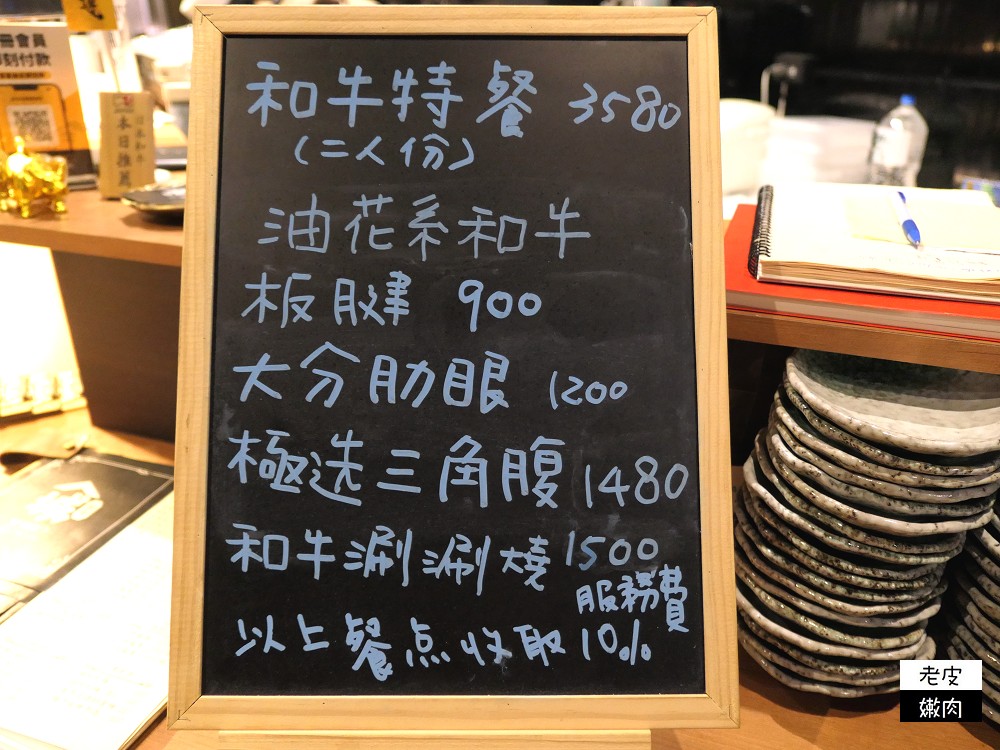 和牛特餐 3580
(二人份)
油花系和牛
板腱 900
大分肋眼 1200
極选三角腹 1480
和牛涮涮燒 1500
服務費
以上餐点收取 10%
會員
刻付款
本日推薦
日本和牛
老皮
嫩肉